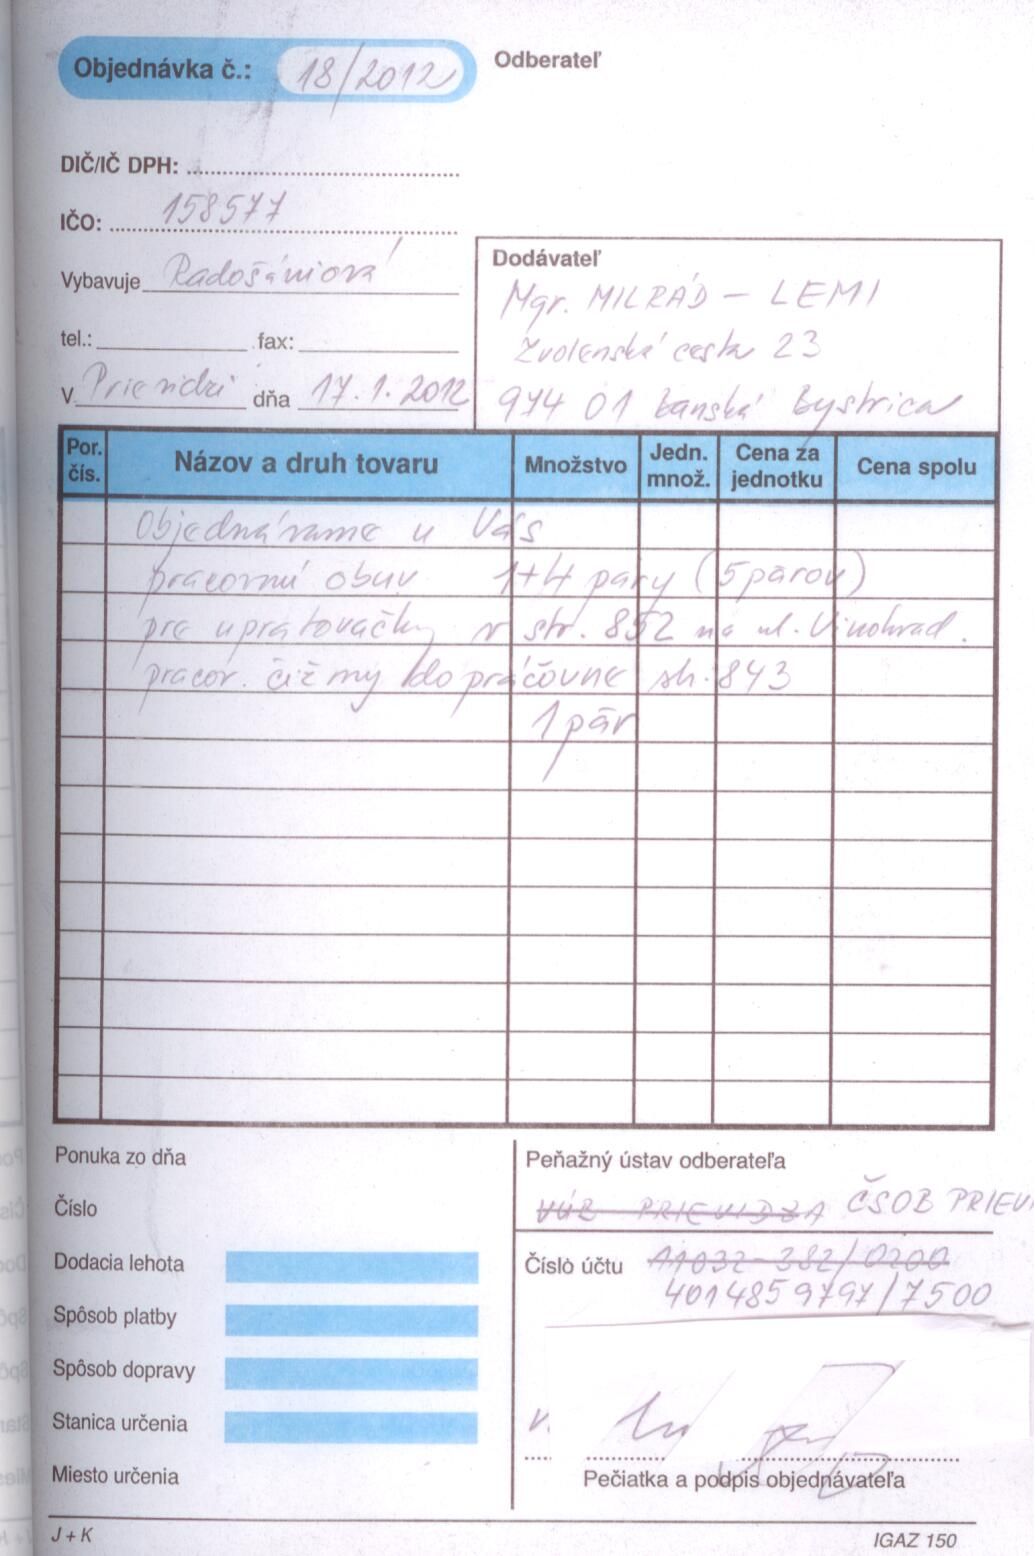 Objednávka č.: 18/2012
Odberateľ
DIČ/IČ DPH:
IČO: 158577
Vybavuje Radošániová
tel.: fax:
V Prievidzi dňa 17.1.2012
Dodávateľ
Mgr. MILRÁD - LEMI
Zvolenská cesta 23
974 01 Banská Bystrica
Por. čís. Názov a druh tovaru Množstvo Jedn. množ. Cena za jednotku Cena spolu
Objednávame u Vás
pracovnú obuv 1+4 pary (5 párov)
pre upratovačky v str. 852 na ul. Vinohrad.
pracov. čižmy do práčovne str. 843
1 pár
Ponuka zo dňa
Číslo
Dodacia lehota
Spôsob platby
Spôsob dopravy
Stanica určenia
Miesto určenia
Peňažný ústav odberateľa
VÚB PRIEVIDZA ČSOB PRIEVI
Číslo účtu
4014859797/7500
Pečiatka a podpis objednávateľa
J + K
IGAZ 150